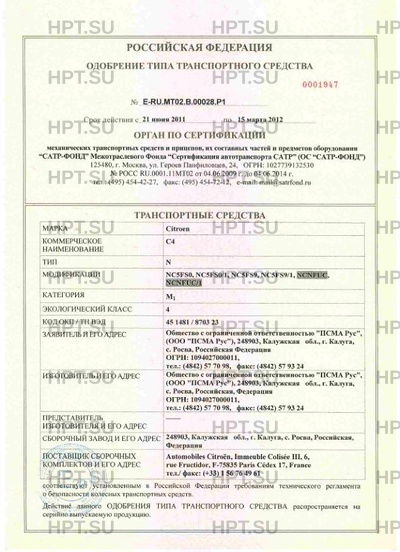 HPT.SU HPT.SU HPT.SU
РОССИЙСКАЯ ФЕДЕРАЦИЯ
ОДОБРЕНИЕ ТИПА ТРАНСПОРТНОГО СРЕДСТВА
0001947
№ E-RU.MT02.B.00028.P1
Срок действия с 21 июня 2011 по 15 марта 2012
ОРГАН ПО СЕРТИФИКАЦИИ
механических транспортных средств и прицепов, их составных частей и предметов оборудования
“САТР-ФОНД” Межотраслевого Фонда “Сертификация автотранспорта САТР” (ОС “САТР-ФОНД”)
125480, г. Москва, ул. Героев Панфиловцев, 24, ОГРН: 1027739132530
№ РОСС RU.0001.11МТ02 от 04.06.2009 г. до 04.06.2014 г.
тел: (495) 454-42-27, факс: (495) 454-72-12, e-mail: mail@satrfond.ru
ТРАНСПОРТНЫЕ СРЕДСТВА
МАРКА Citroen
КОММЕРЧЕСКОЕ НАИМЕНОВАНИЕ C4
ТИП N
МОДИФИКАЦИИ NC5FS0, NC5FS0/1, NC5FS9, NC5FS9/1, NCNFUC,
NCNFUC/1
КАТЕГОРИЯ M1
ЭКОЛОГИЧЕСКИЙ КЛАСС 4
КОД ОКП / ТН ВЭД 45 1481 / 8703 23
ЗАЯВИТЕЛЬ И ЕГО АДРЕС Общество с ограниченной ответственностью "ПСМА Рус",
(ООО "ПСМА Рус"), 248903, Калужская обл., г. Калуга,
с. Росва, Российская Федерация
ОГРН: 1094027000011,
тел.: (4842) 57 70 98, факс: (4842) 57 93 24
ИЗГОТОВИТЕЛЬ И ЕГО АДРЕС Общество с ограниченной ответственностью "ПСМА Рус",
(ООО "ПСМА Рус"), 248903, Калужская обл., г. Калуга,
с. Росва, Российская, Федерация
ОГРН: 1094027000011,
тел.: (4842) 57 70 98, факс: (4842) 57 93 24
ПРЕДСТАВИТЕЛЬ
ИЗГОТОВИТЕЛЯ И ЕГО АДРЕС
СБОРОЧНЫЙ ЗАВОД И ЕГО АДРЕС 248903, Калужская обл., г. Калуга, с. Росва, Российская,
Федерация
ПОСТАВЩИК СБОРОЧНЫХ Automobiles Citroën, Immeuble Colisée III, 6,
КОМПЛЕКТОВ И ЕГО АДРЕС rue Fructidor, F-75835 Paris Cédex 17, France
тел./ факс: (+33) 1 56 76 49 61
соответствуют установленным в Российской Федерации требованиям технического регламента
о безопасности колесных транспортных средств.
Действие данного ОДОБРЕНИЯ ТИПА ТРАНСПОРТНОГО СРЕДСТВА распространяется на
серийно выпускаемую продукцию.
HPT.SU HPT.SU HPT.SU